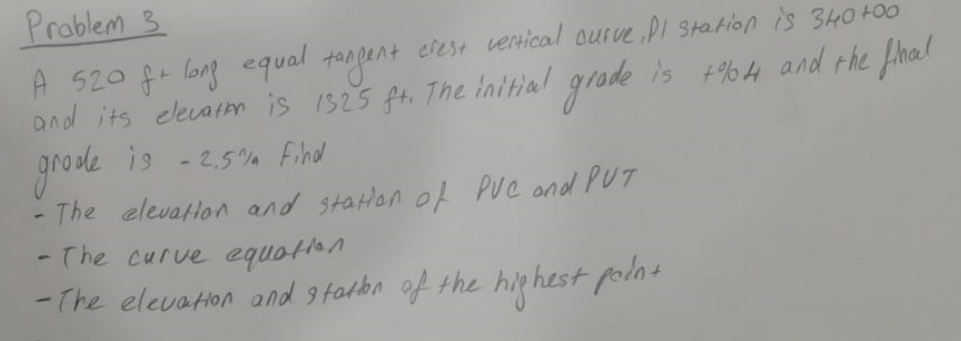 Problem 3
A 520 ft long equal tangent crest vertical curve. PI station is 340+00
and its elevation is 1325 ft. The initial grade is +%4 and the final
grade is -2.5% find
- The elevation and station of PVC and PVT
- The curve equation
- The elevation and station of the highest point